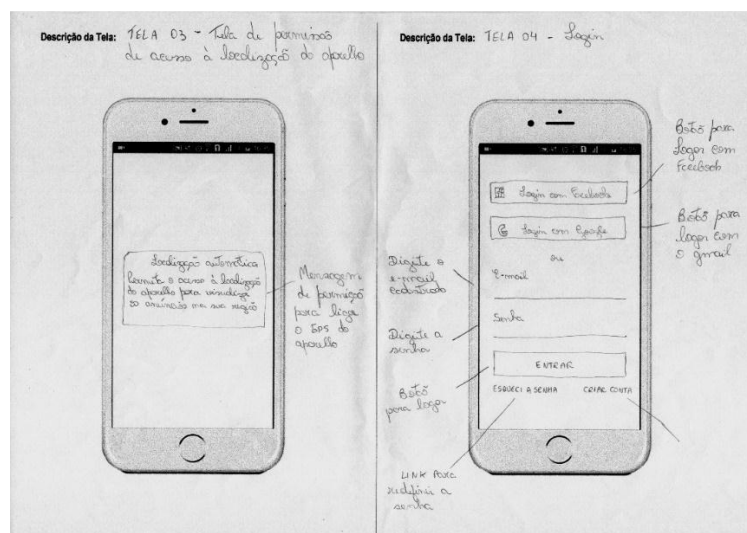 Descrição da Tela: TELA 03 - Tela de permissão
de acesso à localização do aparelho
Localização automática
Permita o acesso à localização
do aparelho para visualizar
os anúncios na sua região
Mensagem
de permissão
para ligar
o GPS do
aparelho
Descrição da Tela: TELA 04 - Login
Login com Facebook
Login com Google
ou
E-mail
Senha
ENTRAR
ESQUECI A SENHA CRIAR CONTA
Botão para
logar com
Facebook
Botão para
logar com
o gmail
Digite o
e-mail
cadastrado
Digite a
senha
Botão
para logar
LINK PARA
redefinir a
senha